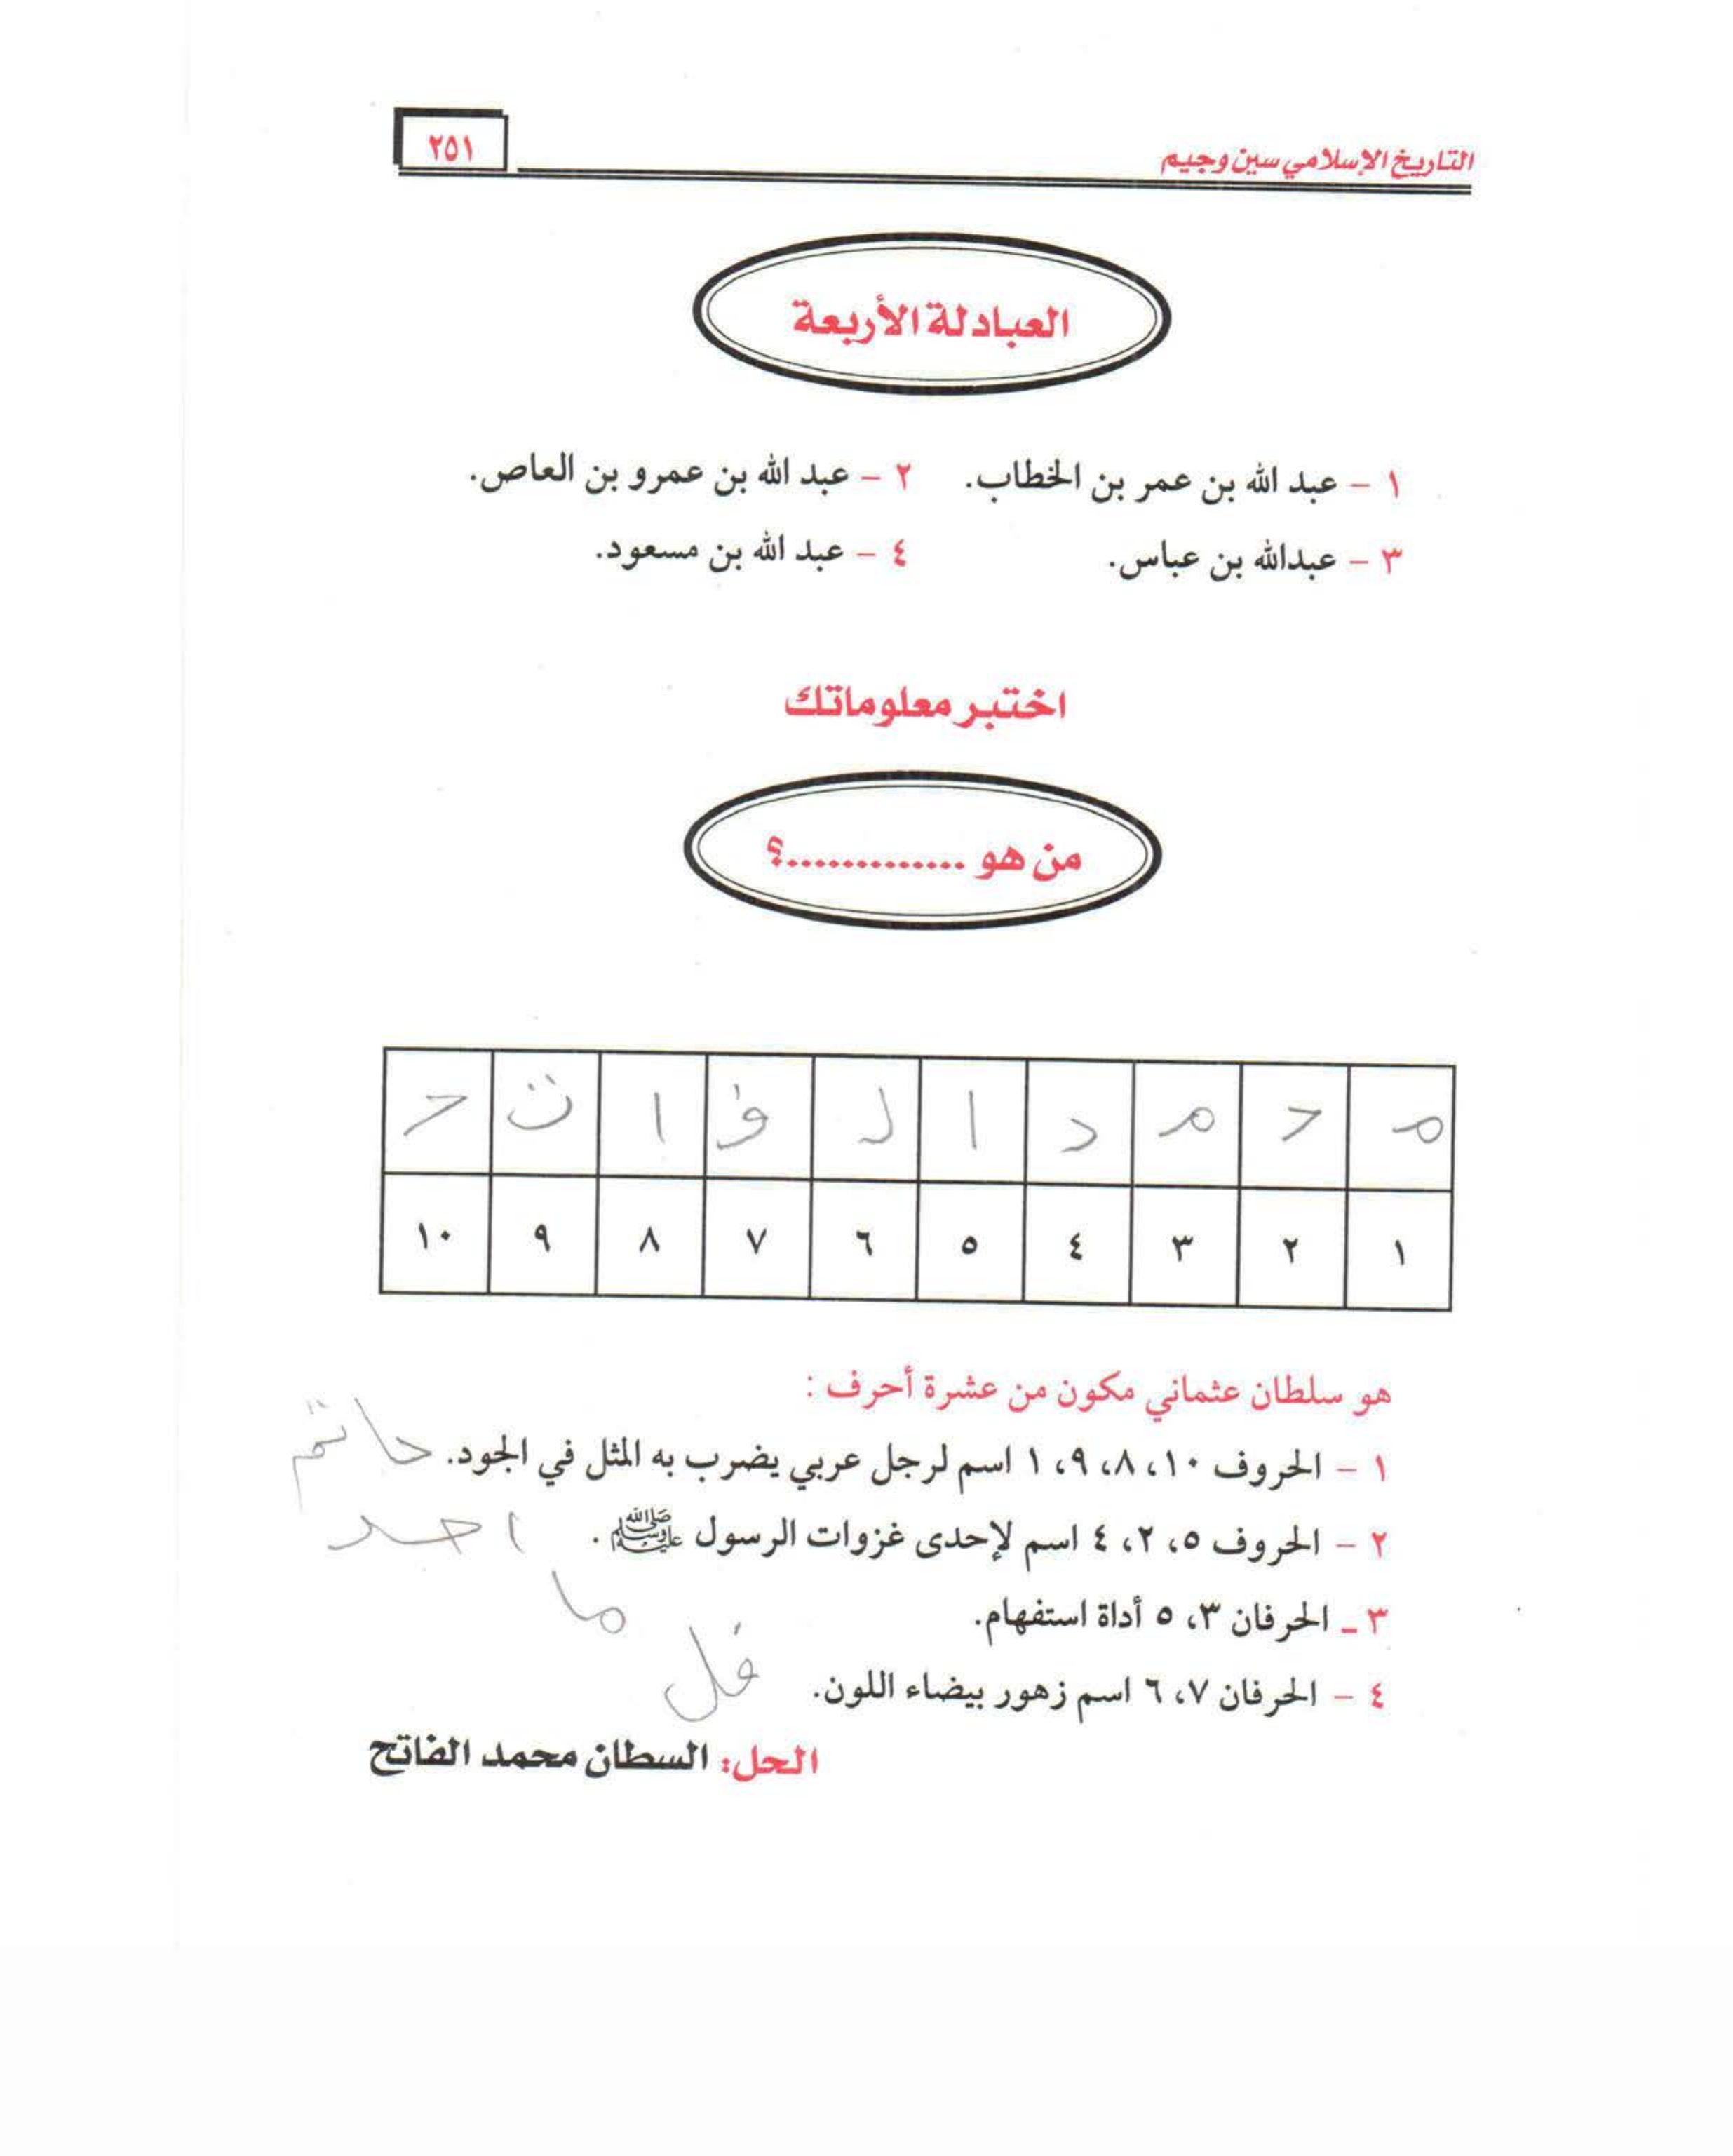 التاريخ الإسلامي سين وجيم
٢٥١
العبادلة الأربعة
١ – عبد الله بن عمر بن الخطاب. ٢ – عبد الله بن عمرو بن العاص.
٣ – عبدالله بن عباس. ٤ – عبد الله بن مسعود.
اختبر معلوماتك
من هو ..............؟
م ح م د ا ل ف ا ت ح
١ ٢ ٣ ٤ ٥ ٦ ٧ ٨ ٩ ١٠
هو سلطان عثماني مكون من عشرة أحرف :
١ – الحروف ١٠، ٨، ٩، ١ اسم لرجل عربي يضرب به المثل في الجود. حاتم
٢ – الحروف ٥، ٢، ٤ اسم لإحدى غزوات الرسول ﷺ . احد
٣ ـ الحرفان ٣، ٥ أداة استفهام. ما
٤ – الحرفان ٧، ٦ اسم زهور بيضاء اللون. فل
الحل: السطان محمد الفاتح